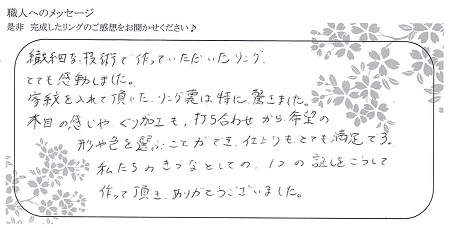 職人へのメッセージ
是非 完成したリングのご感想をお聞かせください♪
繊細な技術で作っていただいたリング、
とても感動しました。
家紋を入れて頂いた、リング裏は特に驚きました。
木目の感じや、ぐり加工も、打ち合わせから希望の
形や色を選ぶことができ、仕上りも、とても満足です。
私たちのきづなとしての、1つの証しをこうして
作って頂き、ありがとうございました。